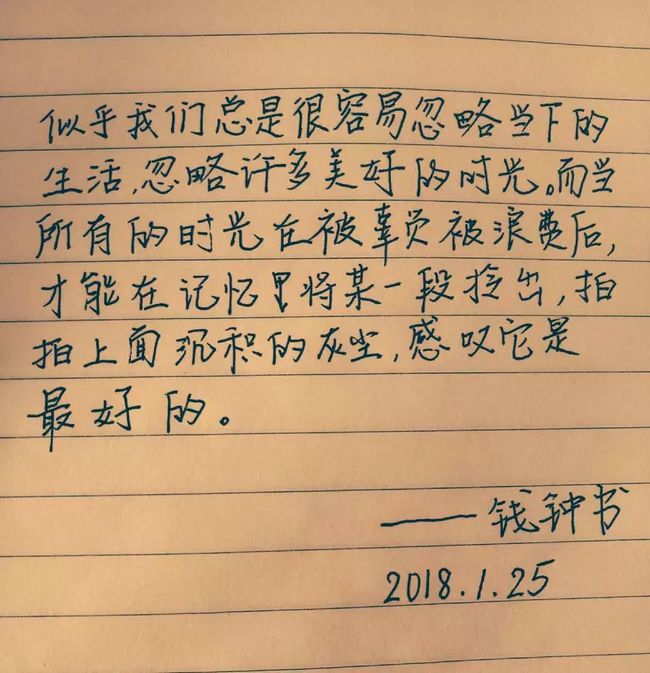 似乎我们总是很容易忽略当下的
生活,忽略许多美好的时光。而当
所有的时光在被辜负被浪费后,
才能在记忆里将某一段拎出,拍
拍上面沉积的灰尘,感叹它是
最好的。
——钱钟书
2018.1.25